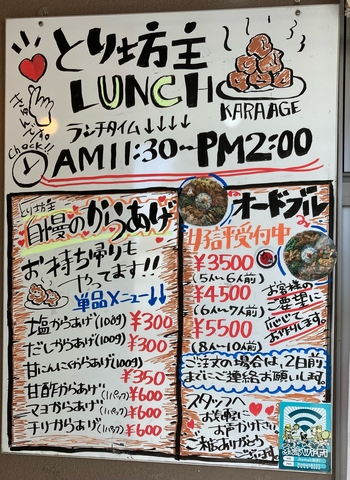 とり坊主
LUNCH
KARAAGE
きゅんです
Check!!
ランチタイム↓↓↓↓
AM11:30~PM2:00
とり坊主
自慢のからあげ
お持ち帰りも
やってます!!
単品メニュー↓↓
塩からあげ(100g) ¥300
だしからあげ(100g) ¥300
甘にんにくからあげ(100g)
¥350
甘酢からあげ(1パック) ¥600
マヨからあげ(1パック) ¥600
チリからあげ(1パック) ¥600
オードブル
好評受付中
¥3500
(5人~6人前)
¥4500
(6人~7人前)
¥5500
(8人~10人前)
お客様の
ご要望に
応じて
お作りします。
ご注文の場合は、2日前
までにご連絡お願いします。
スタッフへ
お気軽に
お声かけください
ご相談ありがとう
ございます。
Wi-Fi